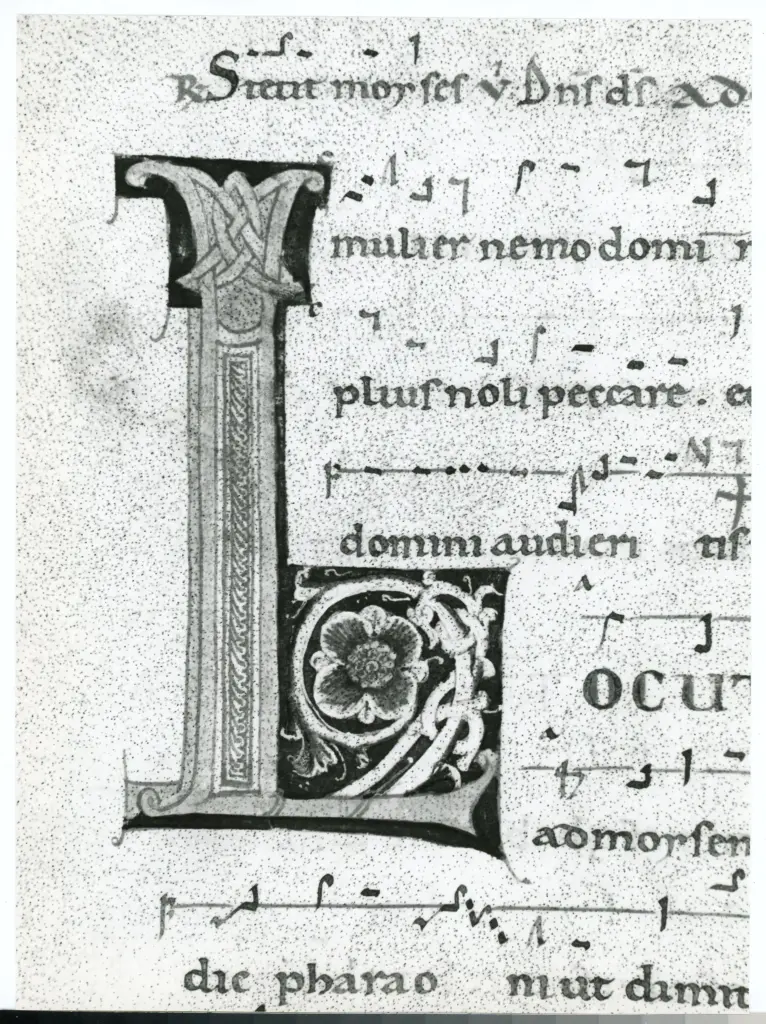 R Stetit moyses v Dn̄s ds̄. Ad
mulier nemo domi n
plius noli peccare. ec
domini audieri tis
L ocut
ad moysen
dic pharao ni ut dimit